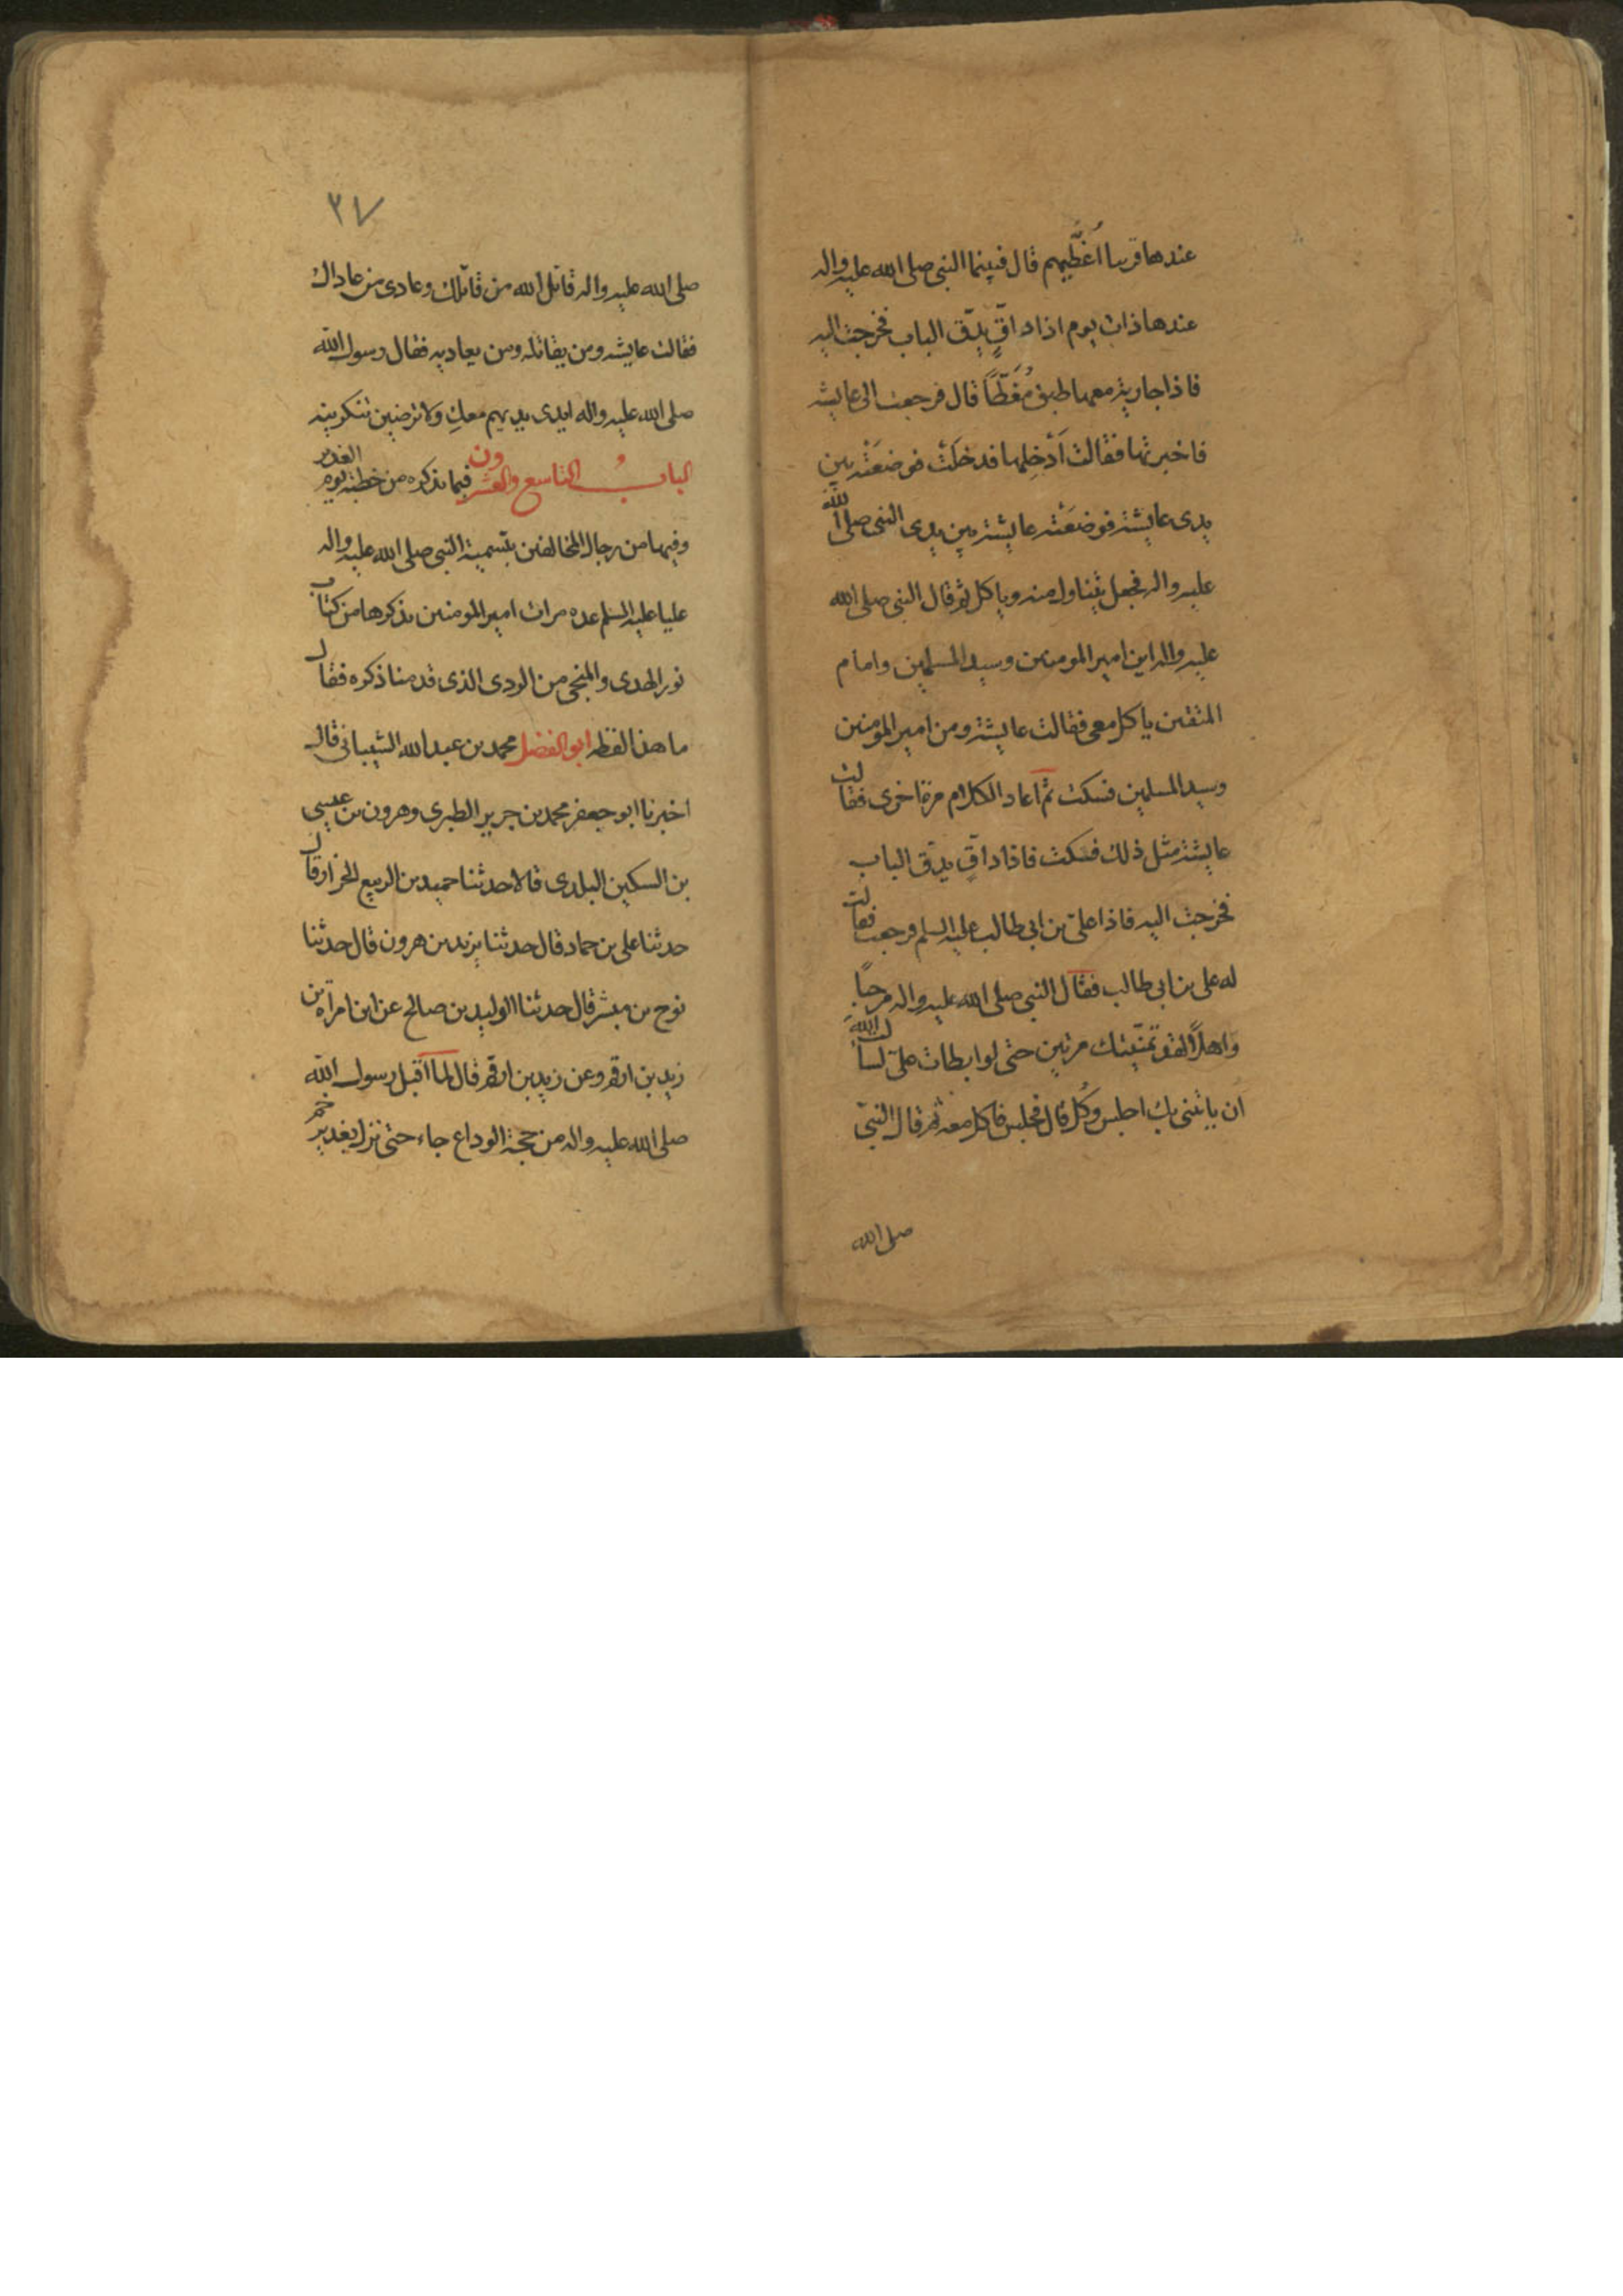 عندها قريبا اُغَطّيهم قال فبينما النبى صلى الله عليه واله
عندها ذات يوم اذا داقٍّ يدّق الباب فخرجت اليه
فاذا جارية معها طبق مُغَطّاً قال فرجعت الى عايشه
فاخبرتها فقالت اَدْخِلها فدخلَتْ فوضعَتْه بين
يدى عايشة فوضعَتْه عايشة بين يدى النبى صلى الله
عليه واله فجعل يتناول منه وياكل ثم قال النبى صلى الله
عليه واله اين امير المومنين وسيد المسلمين وامام
المتقين ياكل معى فقالت عايشة ومن امير المومنين
وسيد المسلمين فسكت ثم اعاد الكلام مرة اخرى فقالت
عايشة مثل ذلك فسكت فاذا داقٍ يدّق الباب
فخرجت اليه فاذا على بن ابى طالب عليه السلم فرجعت فقالت
له على بن ابى طالب فقال النبى صلى الله عليه واله مرحباً
واهلاً لقد تمنّيتك مرتين حتى لو ابطات علىّ لسالت الله
ان ياتينى بك اجلس وكُل قال فجلس فاكل معه ثم قال النبىّ
صلى الله
٢٧
صلى الله عليه واله قاتل الله من قاتلك وعادى من عاداك
فقالت عايشه ومن يقاتله ومن يعاديه فقال رسول الله
صلى الله عليه واله ايدى يديهم معكِ ولا ترضين تنكرينه
البابُ التاسع والعشرون فيما نذكره من خطبته يوم الغدير
وفيها من رجال المخالفين بتسمية النبى صلى الله عليه واله
عليا عليه السلم عده مرات امير المومنين نذكرها من كتاب
نور الهدى والمنجى من الردى الذى قدمنا ذكره فقال
ما هذا لفظه ابو الفضل محمد بن عبد الله الشيبانى قال
اخبرنا ابو جعفر محمد بن جرير الطبرى وهرون بن عيسى
بن السكين البلدى قالا حدثنا حميد بن الربيع الخزاز قال
حدثنا على بن حماد قال حدثنا يزيد بن هرون قال حدثنا
نوح بن مبشر قال حدثنا الوليد بن صالح عن ابن امراة بن
زيد بن ارقم وعن زيد بن ارقم قال لما اقبل رسول الله
صلى الله عليه واله من حجة الوداع جاء حتى نزل بغدير خم